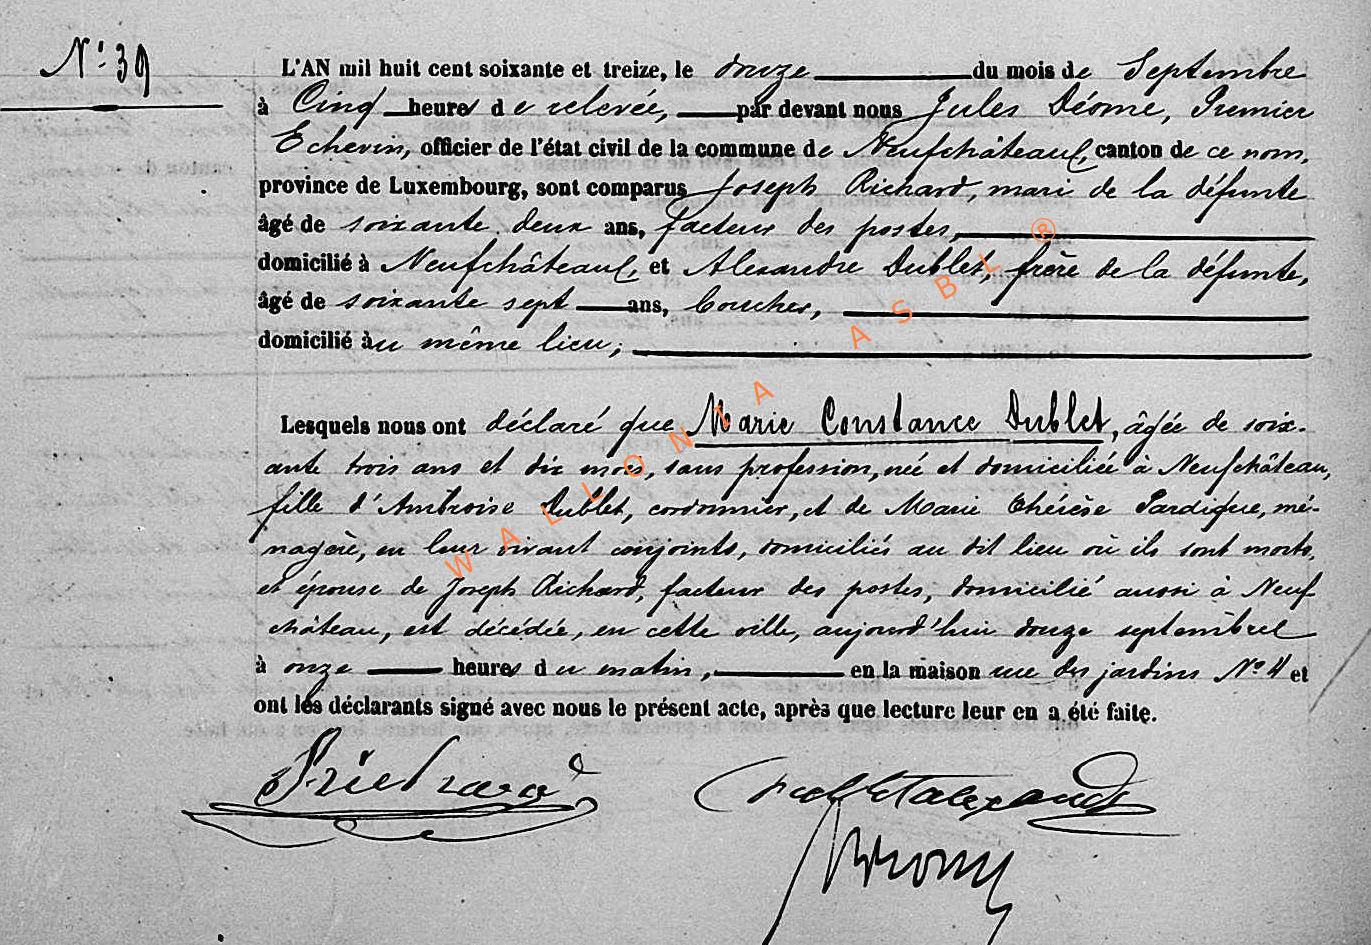 N° 39
L'AN mil huit cent soixante et treize, le douze du mois de Septembre
à Cinq heures de relevée, par devant nous Jules Déome, Premier
Echevin, officier de l'état civil de la commune de Neufchâteau, canton de ce nom,
province de Luxembourg, sont comparus Joseph Richard, mari de la défunte
âgé de soixante deux ans, facteur des postes,
domicilié à Neufchâteau, et Alexandre Dublet, frère de la défunte,
âgé de soixante sept ans, Boucher,
domicilié au même lieu;
Lesquels nous ont déclaré que Marie Constance Dublet, âgée de soix-
ante trois ans et dix mois, sans profession, née et domiciliée à Neufchâteau,
fille d'Ambroise Dublet, cordonnier, et de Marie Thérèse Pardique, mé-
nagère, en leur vivant conjoints, domiciliés au dit lieu où ils sont morts,
et épouse de Joseph Richard, facteur des postes, domicilié aussi à Neuf-
château, est décédée, en cette ville, aujourd'hui douze septembre
à onze heures du matin, en la maison rue des jardins N° 4 et
ont les déclarants signé avec nous le présent acte, après que lecture leur en a été faite.
WALLONIA ASBL ®